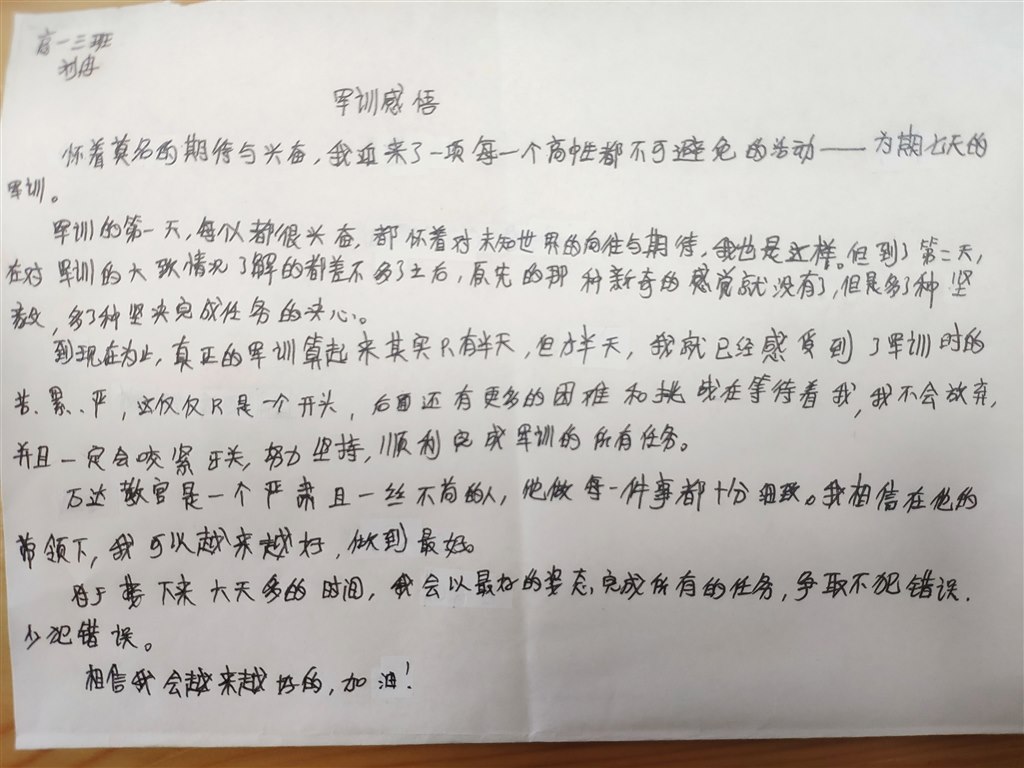 高一三班
刘冉
军训感悟
怀着莫名的期待与兴奋,我迎来了一项每一个高中生都不可避免的活动——为期七天的
军训。
军训的第一天,每人都很兴奋,都怀着对未知世界的向往与期待,我也是这样。但到了第二天,
在对军训的大致情况了解的都差不多了之后,原先的那种新奇的感觉就没有了,但是多了种坚
毅,多了种坚决完成任务的决心。
到现在为止,真正的军训算起来其实只有半天,但才半天,我就已经感受到了军训时的
苦、累、严,这仅仅只是一个开头,后面还有更多的困难和挑战在等待着我,我不会放弃,
并且一定会咬紧牙关,努力坚持,顺利完成军训的所有任务。
万达教官是一个严肃且一丝不苟的人,他做每一件事都十分细致。我相信在他的
带领下,我可以越来越好,做到最好。
对于接下来六天多的时间,我会以最好的姿态完成所有的任务,争取不犯错误.
少犯错误。
相信我会越来越好的,加油!